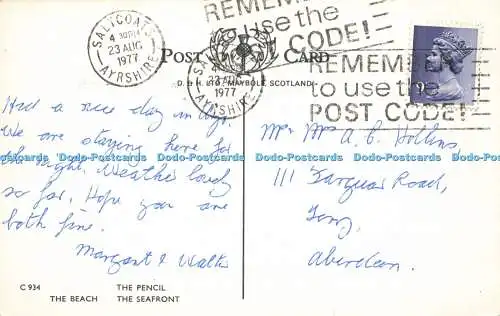 SALTCOATS
4 30PM
23 AUG
1977
AYRSHIRE
REMEMBER
to use the
POST CODE!
POST CARD
D. & H. LTD. MAYBOLE SCOTLAND
23 AUG
1977
AYRSHIRE
REMEMBER
to use the
POST CODE!
Had a nice day
We are staying here for
the night. Weather lovely
so far. Hope you are
both fine.
Margaret & Walter
Mr Mrs A. C. Hollins
111 Farquar Road,
Torry,
Aberdeen.
Dodo-Postcards Dodo-Postcards Dodo-Postcards Dodo-Postcards Dodo-Postcards
C 934 THE PENCIL
THE BEACH THE SEAFRONT